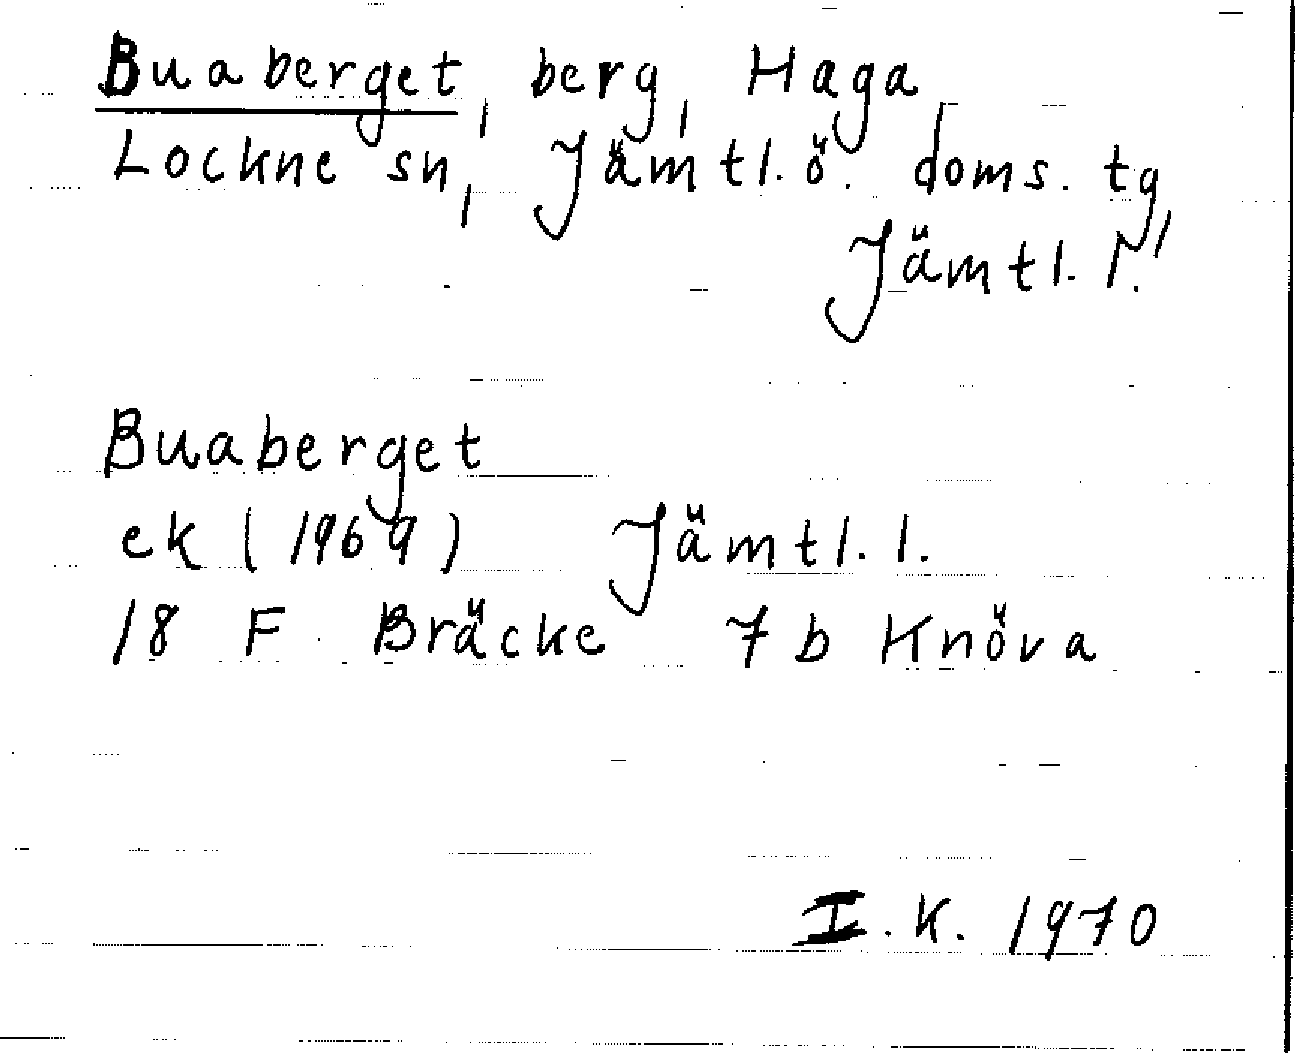 Buaberget, berg, Haga
Lockne sn, Jämtl. ö. doms. tg,
Jämtl. l.
Buaberget
ek (1969) Jämtl. l.
18 F Bräcke 7 b Knöva
I. K. 1970